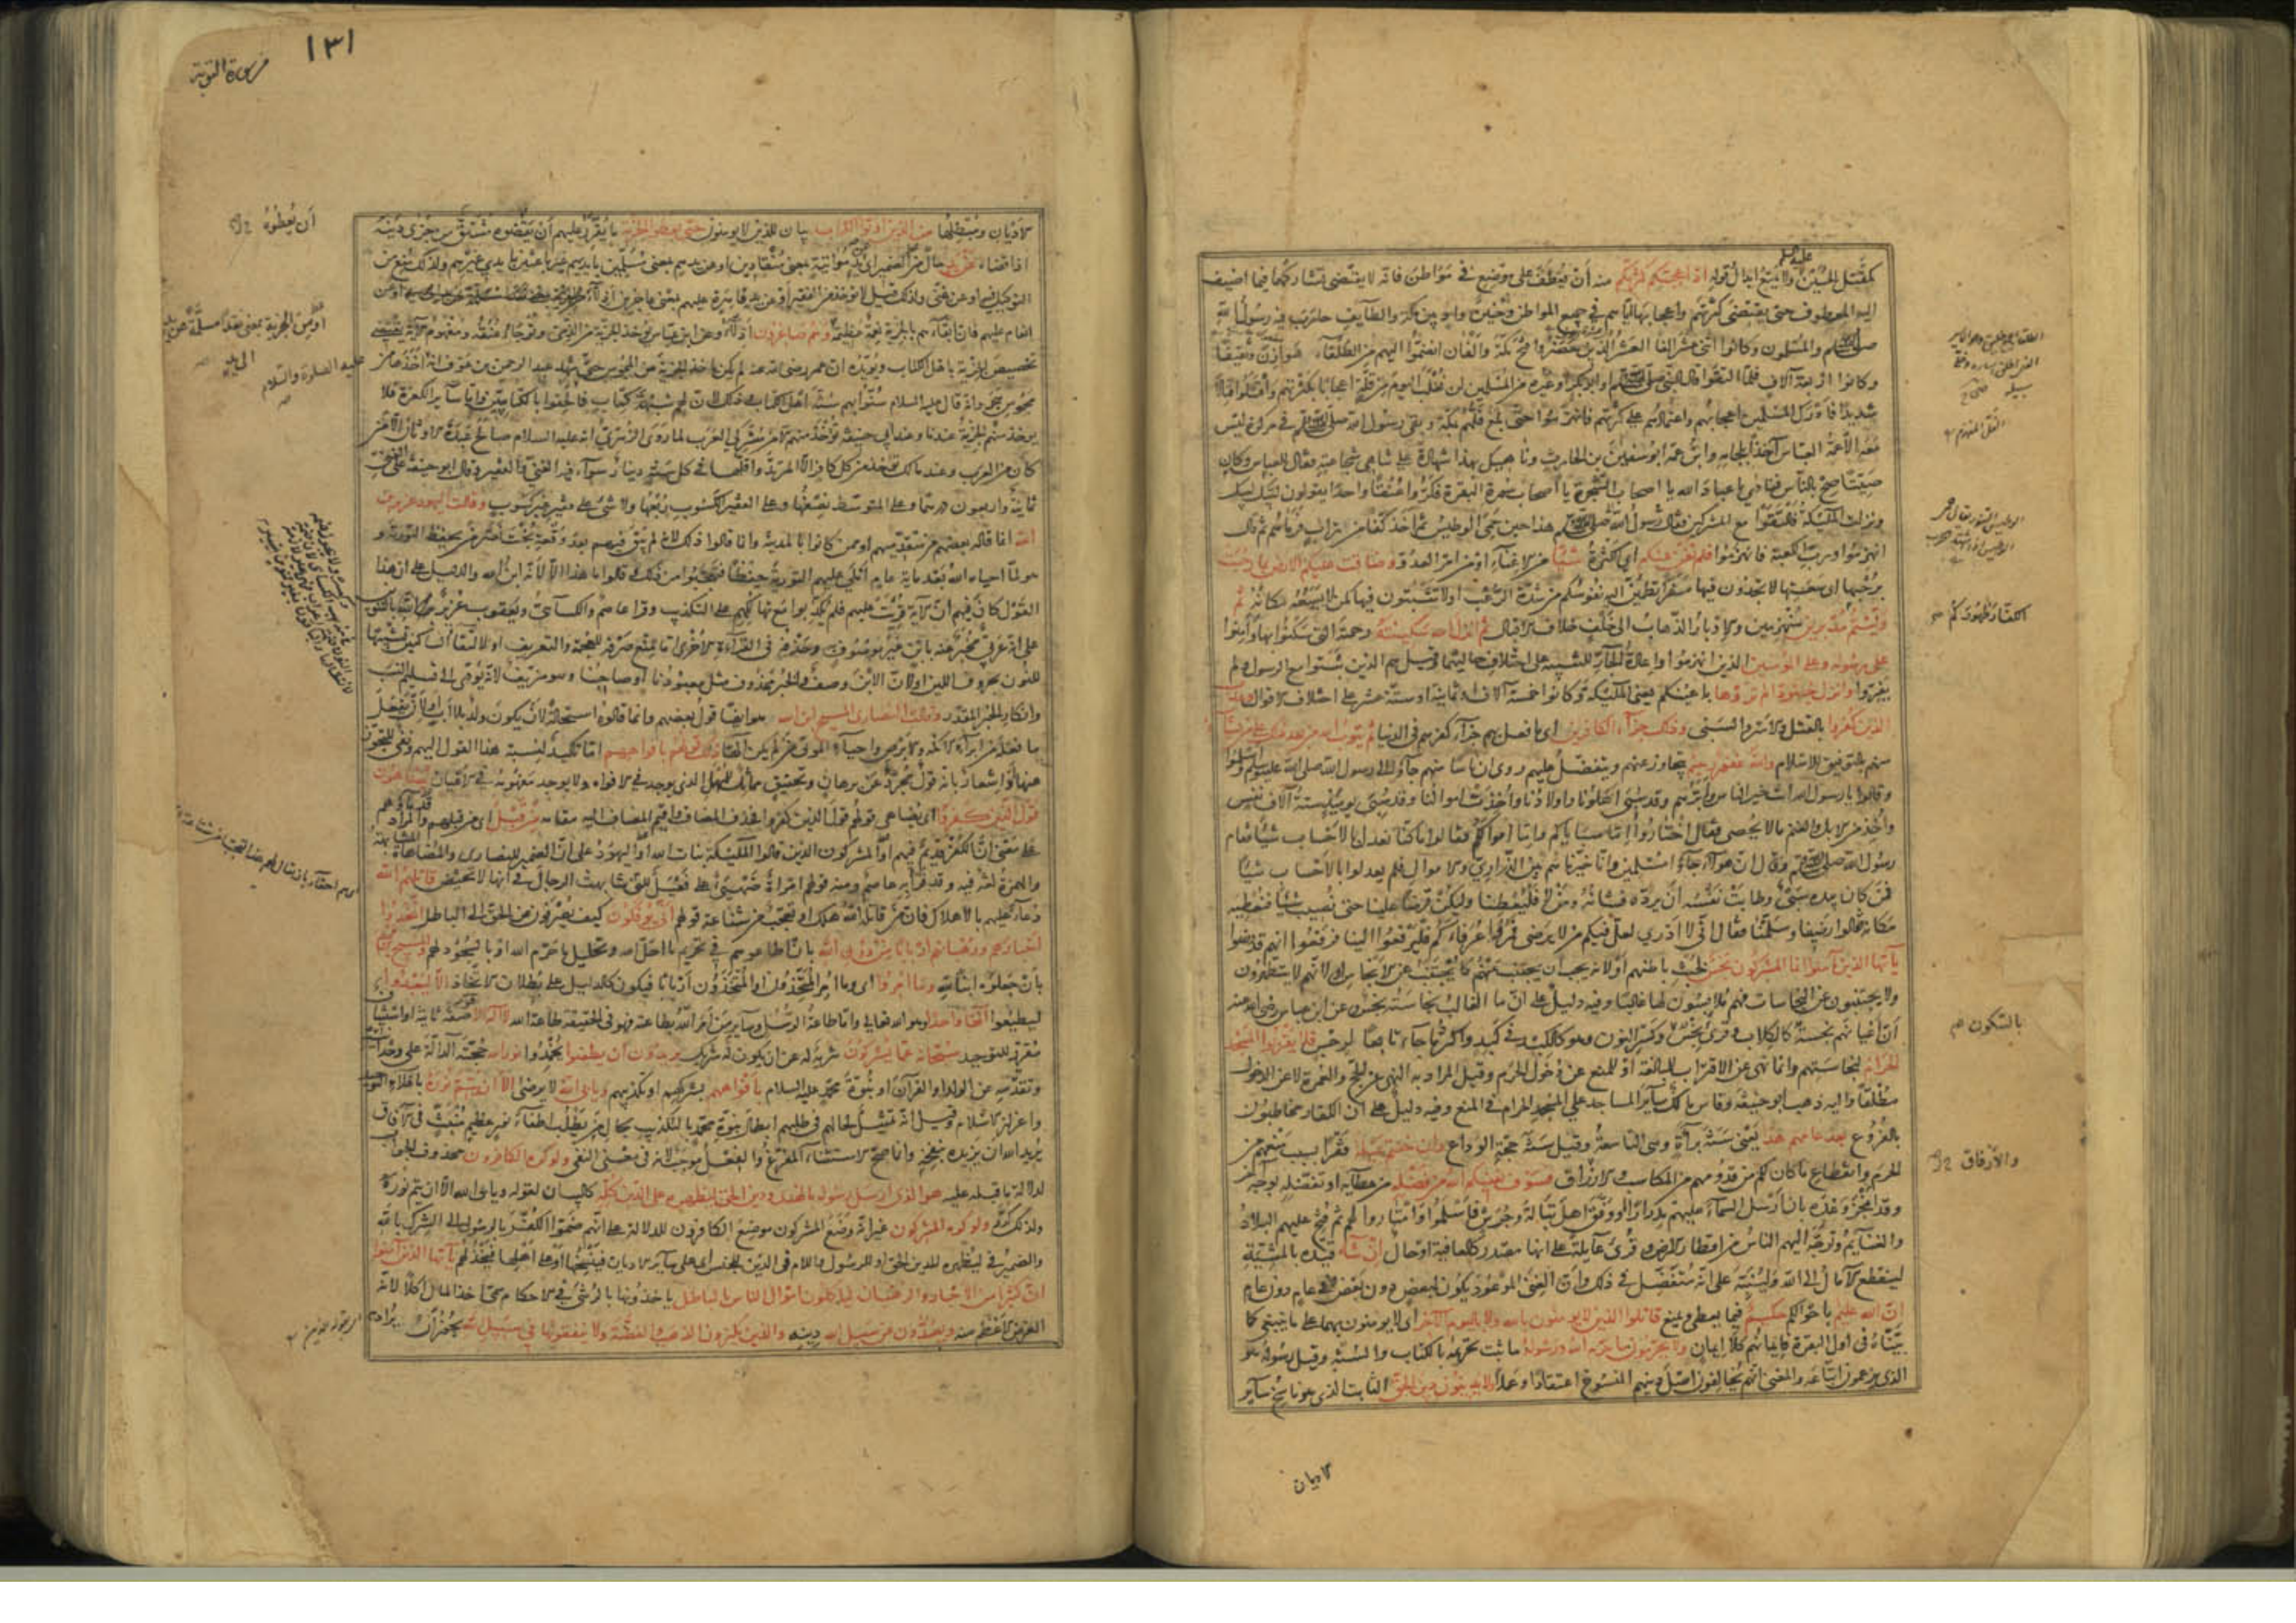 كمقتل الحسين ولا يمنع ابدال قوله اذ اعجبتكم كثرتكم منه أن يعطف على موضع في مواطن فانه لا يقتضي تشاركهما فيما اضيف
اليه المعطوف حتى يقتضي كثرتهم واعجابها اياهم في جميع المواطن وحنين واد بين مكة والطايف حارب فيه رسول الله
صلى الله عليه وسلم والمسلمون وكانوا اثنى عشر الفا العشرة الذين حضروا فتح مكة والفان انضموا اليهم من الطلقاء هوازن وثقيفا
وكانوا اربعة آلاف فلما التقوا قال النبي صلى الله عليه وسلم او ابو بكر او غيره من المسلمين لن نغلب اليوم من قلة اعجابا بكثرتهم واقتتلوا قتالا
شديدا فادرك المسلمين اعجابهم واعتمادهم على كثرتهم فانهزموا حتى بلغ فلهم مكة وبقي رسول الله صلى الله عليه وسلم في مركزه ليس
معه الا عمه العباس آخذا بلجامه وابن عمه ابو سفيان بن الحارث وناهيك بهذا شهادة على تناهي شجاعته فقال للعباس وكان
صيتا صح بالناس فنادى يا عباد الله يا اصحاب الشجرة يا اصحاب سورة البقرة فكروا عنقا واحدا يقولون لبيك لبيك
ونزلت الملئكة فالتقوا مع المشركين فقال رسول الله صلى الله عليه وسلم هذا حين حمي الوطيس ثم اخذ كفا من تراب فرماهم ثم قال
انهزموا ورب الكعبة فانهزموا فلم تغن عنكم اي الكثرة شيئا من الاغناء او من امر العدو وضاقت عليكم الارض بما رحبت
برحبها اى سعتها لا تجدون فيها مفرا تطمئن اليه نفوسكم من شدة الرعب او لا تثبتون فيها كمن لا يسعه مكانه ثم
وليتم مدبرين منهزمين والادبار الذهاب الى خلف خلاف الاقبال ثم انزل الله سكينته رحمته التي سكنوا بها وامنوا
على رسوله وعلى المؤمنين الذين انهزموا واعادة الجار للتنبيه على اختلاف حاليهما وقيل هم الذين ثبتوا مع الرسول ولم
يفروا وانزل جنودا لم تروها باعينكم يعني الملئكة وكانوا خمسة آلاف او ثمانية او ستة عشر على اختلاف الاقوال وعذب
الذين كفروا بالقتل والاسر والسبي وذلك جزاء الكافرين اى ما فعل بهم جزاء كفرهم في الدنيا ثم يتوب الله من بعد ذلك على من يشاء
منهم بالتوفيق للاسلام والله غفور رحيم يتجاوز عنهم ويتفضل عليهم روى ان ناسا منهم جاؤا الى رسول الله صلى الله عليه وسلم واسلموا
وقالوا يا رسول الله انت خير الناس وابرهم وقد سبي اهلونا واولادنا واخذت اموالنا وقد سبي يومئذ ستة آلاف نفس
واخذ من الابل والغنم ما لا يحصى فقال اختاروا اما سباياكم واما اموالكم فقالوا ما كنا نعدل بالاحساب شيئا فقام
رسول الله صلى الله عليه وسلم وقال ان هؤلاء جاؤا مسلمين وانا خيرناهم بين الذراري والاموال فلم يعدلوا بالاحساب شيئا
فمن كان بيده سبي وطابت نفسه أن يرده فشانه ومن لا فليعطنا وليكن قرضا علينا حتى نصيب شيئا فنعطيه
مكانه فقالوا رضينا وسلمنا فقال انى لا ادري لعل فيكم من لا يرضى فمروا عرفاءكم فليرفعوا الينا فرفعوا انهم قد رضوا
يآيها الذين آمنوا انما المشركون نجس لخبث باطنهم او لانه يجب أن يجتنب عنهم كما يجتنب عن الانجاس او لانهم لا يتطهرون
ولا يجتنبون عن النجاسات فهم ملابسون لها غالبا وفيه دليل على ان ما الغالب نجاسته نجس وعن ابن عباس رضى الله عنه
أن أعيانهم نجسة كالكلاب وقرئ نجس وكسر النون وهو ككبد في كبد واكثر ما جاء تابعا لرجس فلا يقربوا المسجد
الحرام لنجاستهم وانما نهى عن الاقتراب للمبالغة او للمنع عن دخول الحرم وقيل المراد به النهى عن الحج والعمرة لا عن الدخول
مطلقا واليه ذهب ابو حنيفة وقاس مالك سائر المساجد على المسجد الحرام في المنع وفيه دليل على ان الكفار مخاطبون
بالفروع بعد عامهم هذا يعني سنة براءة وهى التاسعة وقيل سنة حجة الوداع وان خفتم عيلة فقرا بسبب منعهم من
الحرم وانقطاع ما كان لكم من قدومهم من المكاسب والارزاق فسوف يغنيكم الله من فضله من عطائه او تفضله بوجه آخر
وقد انجز وعده بان ارسل السماء عليهم مدرارا ووفق اهل تبالة وجرش فاسلموا وامتاروا لهم ثم فتح عليهم البلاد
والغنايم وتوجه اليهم الناس من اقطار الارض وقرئ عايلة على انها مصدر كالعافية او حال ان شاء قيده بالمشيئة
لينقطع الآمال الى الله ولينبه على انه متفضل في ذلك وأن الغنى الموعود يكون لبعض دون بعض وفي عام دون عام
ان الله عليم باحوالكم حكيم فيما يعطى ويمنع قاتلوا الذين لا يومنون بالله ولا باليوم الآخر اى لا يومنون بهما على ما ينبغي كما
بيناه في اول البقرة فايمانهم كلا ايمان ولا يحرمون ما حرم الله ورسوله ما ثبت تحريمه بالكتاب والسنة وقيل رسوله هو
الذى يزعمون اتباعه والمعنى انهم يخالفون اصل دينهم المنسوخ اعتقادا وعملا ولا يدينون دين الحق الثابت الذى هو ناسخ سائر
الاديان
الكفار ظهوركم
بالسكون
والأرفاق
١٣١
سورة التوبة
الاديان ومبطلها من الذين اوتوا الكتاب بيان للذين لا يومنون حتى يعطوا الجزية ما يقرر عليهم أن يقضوه مشتق من جزى دينه
اذا قضاه عن يد حال من الضمير اى عن يد مؤاتية بمعنى منقادين او عن يدهم بمعنى مسلمين بايديهم غير باعثين بايدي غيرهم ولذلك منع من
انعام عليهم فان ابقاءهم بالجزية نعمة عظيمة وهم صاغرون اذلاء وعن ابن عباس يوخذ الجزية من الذمى وتوجأ عنقه ومفهوم الآية يقتضى
تخصيص الجزية باهل الكتاب ويؤيده ان عمر رضى الله عنه لم يكن ياخذ الجزية من المجوس حتى شهد عبد الرحمن بن عوف انه اخذها من
مجوس هجر وانه قال عليه السلام سنوا بهم سنة اهل الكتاب وذلك لان لهم شبهة كتاب فالحقوا بالكتابيين واما ساير الكفرة فلا
يوخذ منهم الجزية عندنا وعند ابي حنيفة تؤخذ منهم الا من مشركي العرب لما روى الزهري انه عليه السلام صالح عبدة الاوثان الا من
كان من العرب وعند مالك تؤخذ من كل كافر الا المرتد واقلها في كل سنة دينار سواء فيه الغني والفقير وقال ابو حنيفة على الغني
ثمانية واربعون درهما وعلى المتوسط نصفها وعلى الفقير الكسوب ربعها ولا شئ على فقير غير كسوب وقالت اليهود عزير بن
الله انما قاله بعضهم من متقدميهم او ممن كانوا بالمدينة وانما قالوا ذلك لانه لم يبق فيهم بعد وقعة بخت نصر من يحفظ التورية و
هو لما احياه الله بعد ماية عام أملى عليهم التورية حفظا فتعجبوا من ذلك وقالوا ما هذا الا لانه ابن الله والدليل على ان هذا
القول كان فيهم أن الآية قرئت عليهم فلم يكذبوا مع تهالكهم على التكذيب وقرا عاصم والكسائي ويعقوب عزير بالتنوين
على انه عربي مخبر عنه بابن غير موصوف وحذفه في القراءة الاخرى اما لمنع صرفه للعجمة والتعريف او لالتقاء الساكنين تشبيها
للنون بحروف اللين او لان الابن وصف والخبر محذوف مثل معبودنا او صاحبنا وهو مزيف لانه يؤدى الى تسليم النسب
وانكار الخبر المقدر وقالت النصارى المسيح ابن الله هو ايضا قول بعضهم وانما قالوه استحالة لان يكون ولد بلا اب او لان يفعل
ما فعله من ابراء الاكمه والابرص واحياء الموتى من لم يكن الها ذلك قولهم بافواههم اما تاكيد لنسبة هذا القول اليهم ونفي للتجوز
عنها او إشعار بانه قول مجرد عن برهان وتحقيق مماثل للمهمل الذى يوجد في الافواه ولا يوجد مفهومه في الاعيان يضاهؤن
قول الذين كفروا اى يضاهى قولهم قول الذين كفروا فحذف المضاف واقيم المضاف اليه مقامه من قبل اى من قبلهم والمراد قدماؤهم
على معنى ان الكفر قديم فيهم او المشركون الذين قالوا الملئكة بنات الله او اليهود على أن الضمير للنصارى والمضاهاة المشابهة
والهمزة لغة فيه وقد قرأ به عاصم ومنه قولهم امراة ضهيئ على فعيل للتى شابهت الرجال في أنها لا تحيض قاتلهم الله
دعاء عليهم بالاهلاك فان من قاتله الله هلك او تعجب من شناعة قولهم أنى يؤفكون كيف يصرفون عن الحق الى الباطل اتخذوا
احبارهم ورهبانهم اربابا من دون الله بان اطاعوهم في تحريم ما احل الله وتحليل ما حرم الله او بالسجود لهم والمسيح بن مريم
بأن جعلوه ابنا لله وما امروا اى وما امر المتخذون او المتخذون اربابا فيكون كالدليل على بطلان الاتخاذ الا ليعبدوا
ليطيعوا الها واحدا وهو الله تعالى واما طاعة الرسل وساير من أمر الله بطاعته فهو في الحقيقة طاعة الله لا اله الا هو صفة ثانية او استيناف
مقرر للتوحيد سبحانه عما يشركون تنزيه له عن ان يكون له شريك يريدون أن يطفئوا يخمدوا نور الله حجته الدالة على وحدانيته
وتقدسه عن الولد او القرآن او نبوة محمد عليه السلام بافواههم بشركهم او تكذيبهم ويابى الله لا يرضى الا ان يتم نوره باعلاء التوحيد
واعزاز الاسلام وقيل انه تمثيل لحالهم في طلبهم ابطال نبوة محمد بالتكذيب بحال من يطلب اطفاء نور عظيم منبث في الآفاق
يريد الله ان يزيده بنفخه وانما صح الاستثناء المفرغ والفعل موجب لانه في معنى النفى ولو كره الكافرون محذوف الجواب
لدلالة ما قبله عليه هو الذى ارسل رسوله بالهدى ودين الحق ليظهره على الدين كله كالبيان لقوله ويابى الله الا ان يتم نوره
ولذلك كرر ولو كره المشركون غير انه وضع المشركون موضع الكافرون للدلالة على انهم ضموا الكفر بالرسول الى الشرك بالله
والضمير في ليظهره للدين الحق او للرسول واللام في الدين للجنس اى على سائر الاديان فينسخها او على اهلها فيخذلهم يآيها الذين آمنوا
ان كثيرا من الاحبار والرهبان لياكلون اموال الناس بالباطل ياخذونها بالرشى في الاحكام سمى اخذ المال اكلا لانه
الغرض الاعظم منه ويصدون عن سبيل الله دينه والذين يكنزون الذهب والفضة ولا ينفقونها في سبيل الله يجوز أن
أن يعطوه
عليه الصلوة والسلام